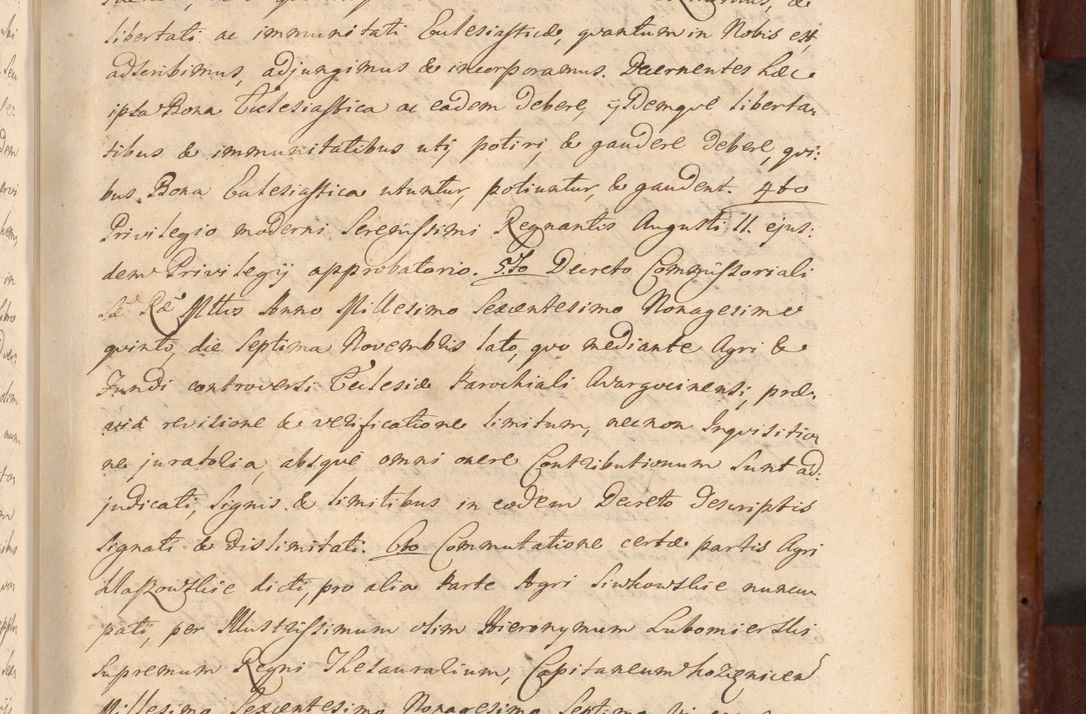 libertati ac immunitati Ecclesiasticæ, quantum in Nobis est
adscribimus, adjungimus & incorporamus. Decernentes hæc
ipsa Bona Ecclesiastica ac eadem debere, ijsdemque liberta-
tibus & immunitatibus uti, potiri, & gaudere debere, qui-
bus Bona Ecclesiastica utuntur, potiuntur, & gaudent. 4to
Privilegio moderni Serenissimi Regnantis Augusti II. ejus-
dem Privilegij approbatorio. 5to Decreto Commissoriali
Sæ Ræ Mttis Anno Millesimo Sexcentesimo Nonagesimo
quinto, die Septima Novembris lato, quo mediante Agri &
Fundi controversi Ecclesiæ Parochiali Avargocinensi, præ-
via revisione & verificatione limitum, necnon Inquisitio
ne juratoria, absque omni onere Contributionum sunt ad-
judicati, signis & limitibus in eodem Decreto descriptis
signati & dislimitati. 6to Commutatione certæ partis Agri
dicti, pro alia Parte Agri Siwkowskie nuncu
pati, per Illustrissimum olim Hieronymum Lubomierski
Supremum Regni Thesaurarium, Capitaneum Kozienicen
Millesimo Sexcentesimo Nonagesimo Septimo